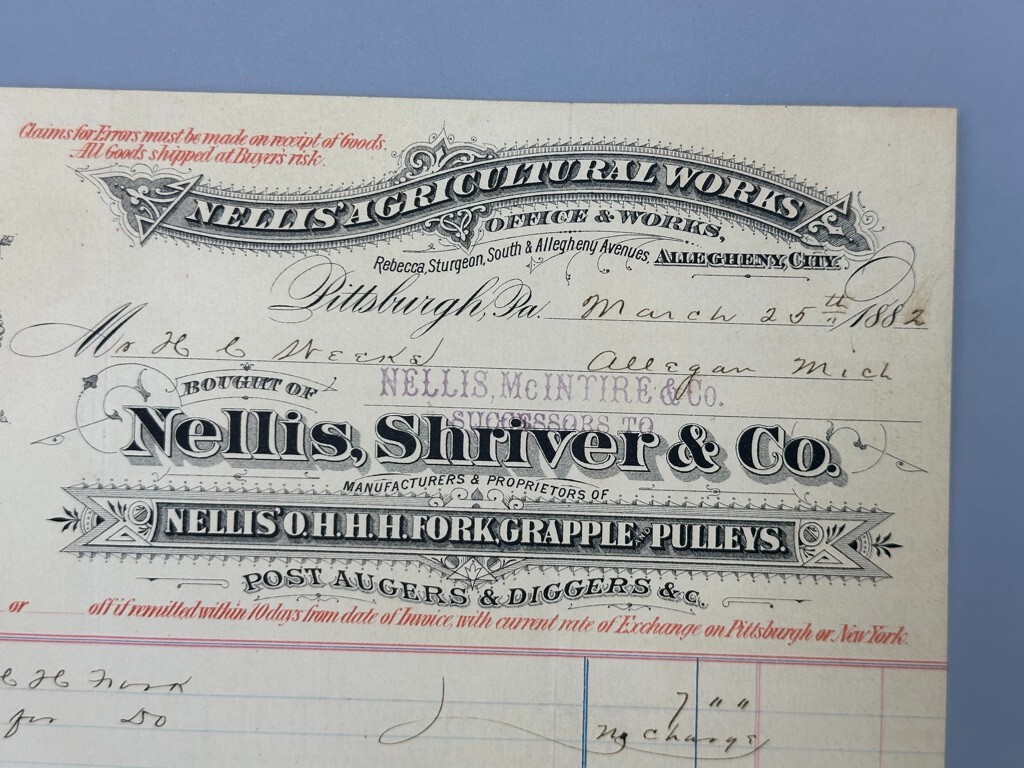 Claims for Errors must be made on receipt of Goods.
All Goods shipped at Buyer's risk.
NELLIS' AGRICULTURAL WORKS
OFFICE & WORKS,
Rebecca, Sturgeon, South & Allegheny Avenues, ALLEGHENY, CITY.
Pittsburgh, Pa. March 25th 1882
Mr H C Weeks Allegan Mich
BOUGHT OF NELLIS, McINTIRE & Co.
SUCCESSORS TO
Nellis, Shriver & Co.
MANUFACTURERS & PROPRIETORS OF
NELLIS' O.H.H.H. FORK, GRAPPLE AND PULLEYS.
POST AUGERS & DIGGERS & C.
or off if remitted within 10 days from date of Invoice, with current rate of Exchange on Pittsburgh or New York.
H Fork 7 " "
for Do No Charge